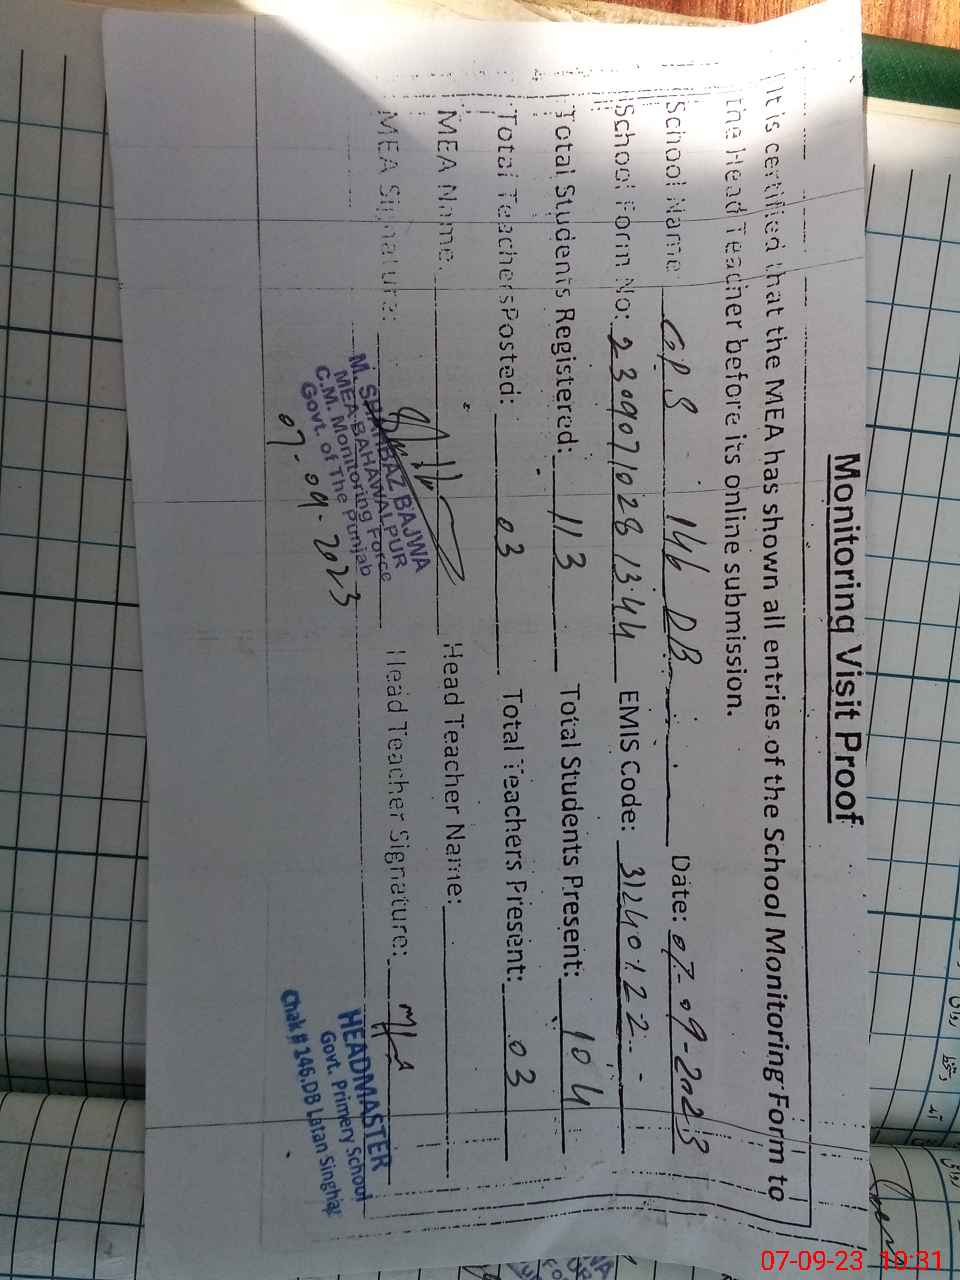 Monitoring Visit Proof
It is certified that the MEA has shown all entries of the School Monitoring Form to
the Head Teacher before its online submission.
School Name: GPS 146 DB Date: 07-09-2023
School Form No: 23090710281344 EMIS Code: 31240122
Total Students Registered: 113 Total Students Present: 104
Total Teachers Posted: 03 Total Teachers Present: 03
MEA Name: Head Teacher Name:
MEA Signature: Head Teacher Signature:
M. SHAHBAZ BAJWA
MEA BAHAWALPUR
C.M. Monitoring Force
Govt. of The Punjab
07-09-2023
HEADMASTER
Govt. Primery School
Chak # 146.DB Latan Singhay
07-09-23 10:31